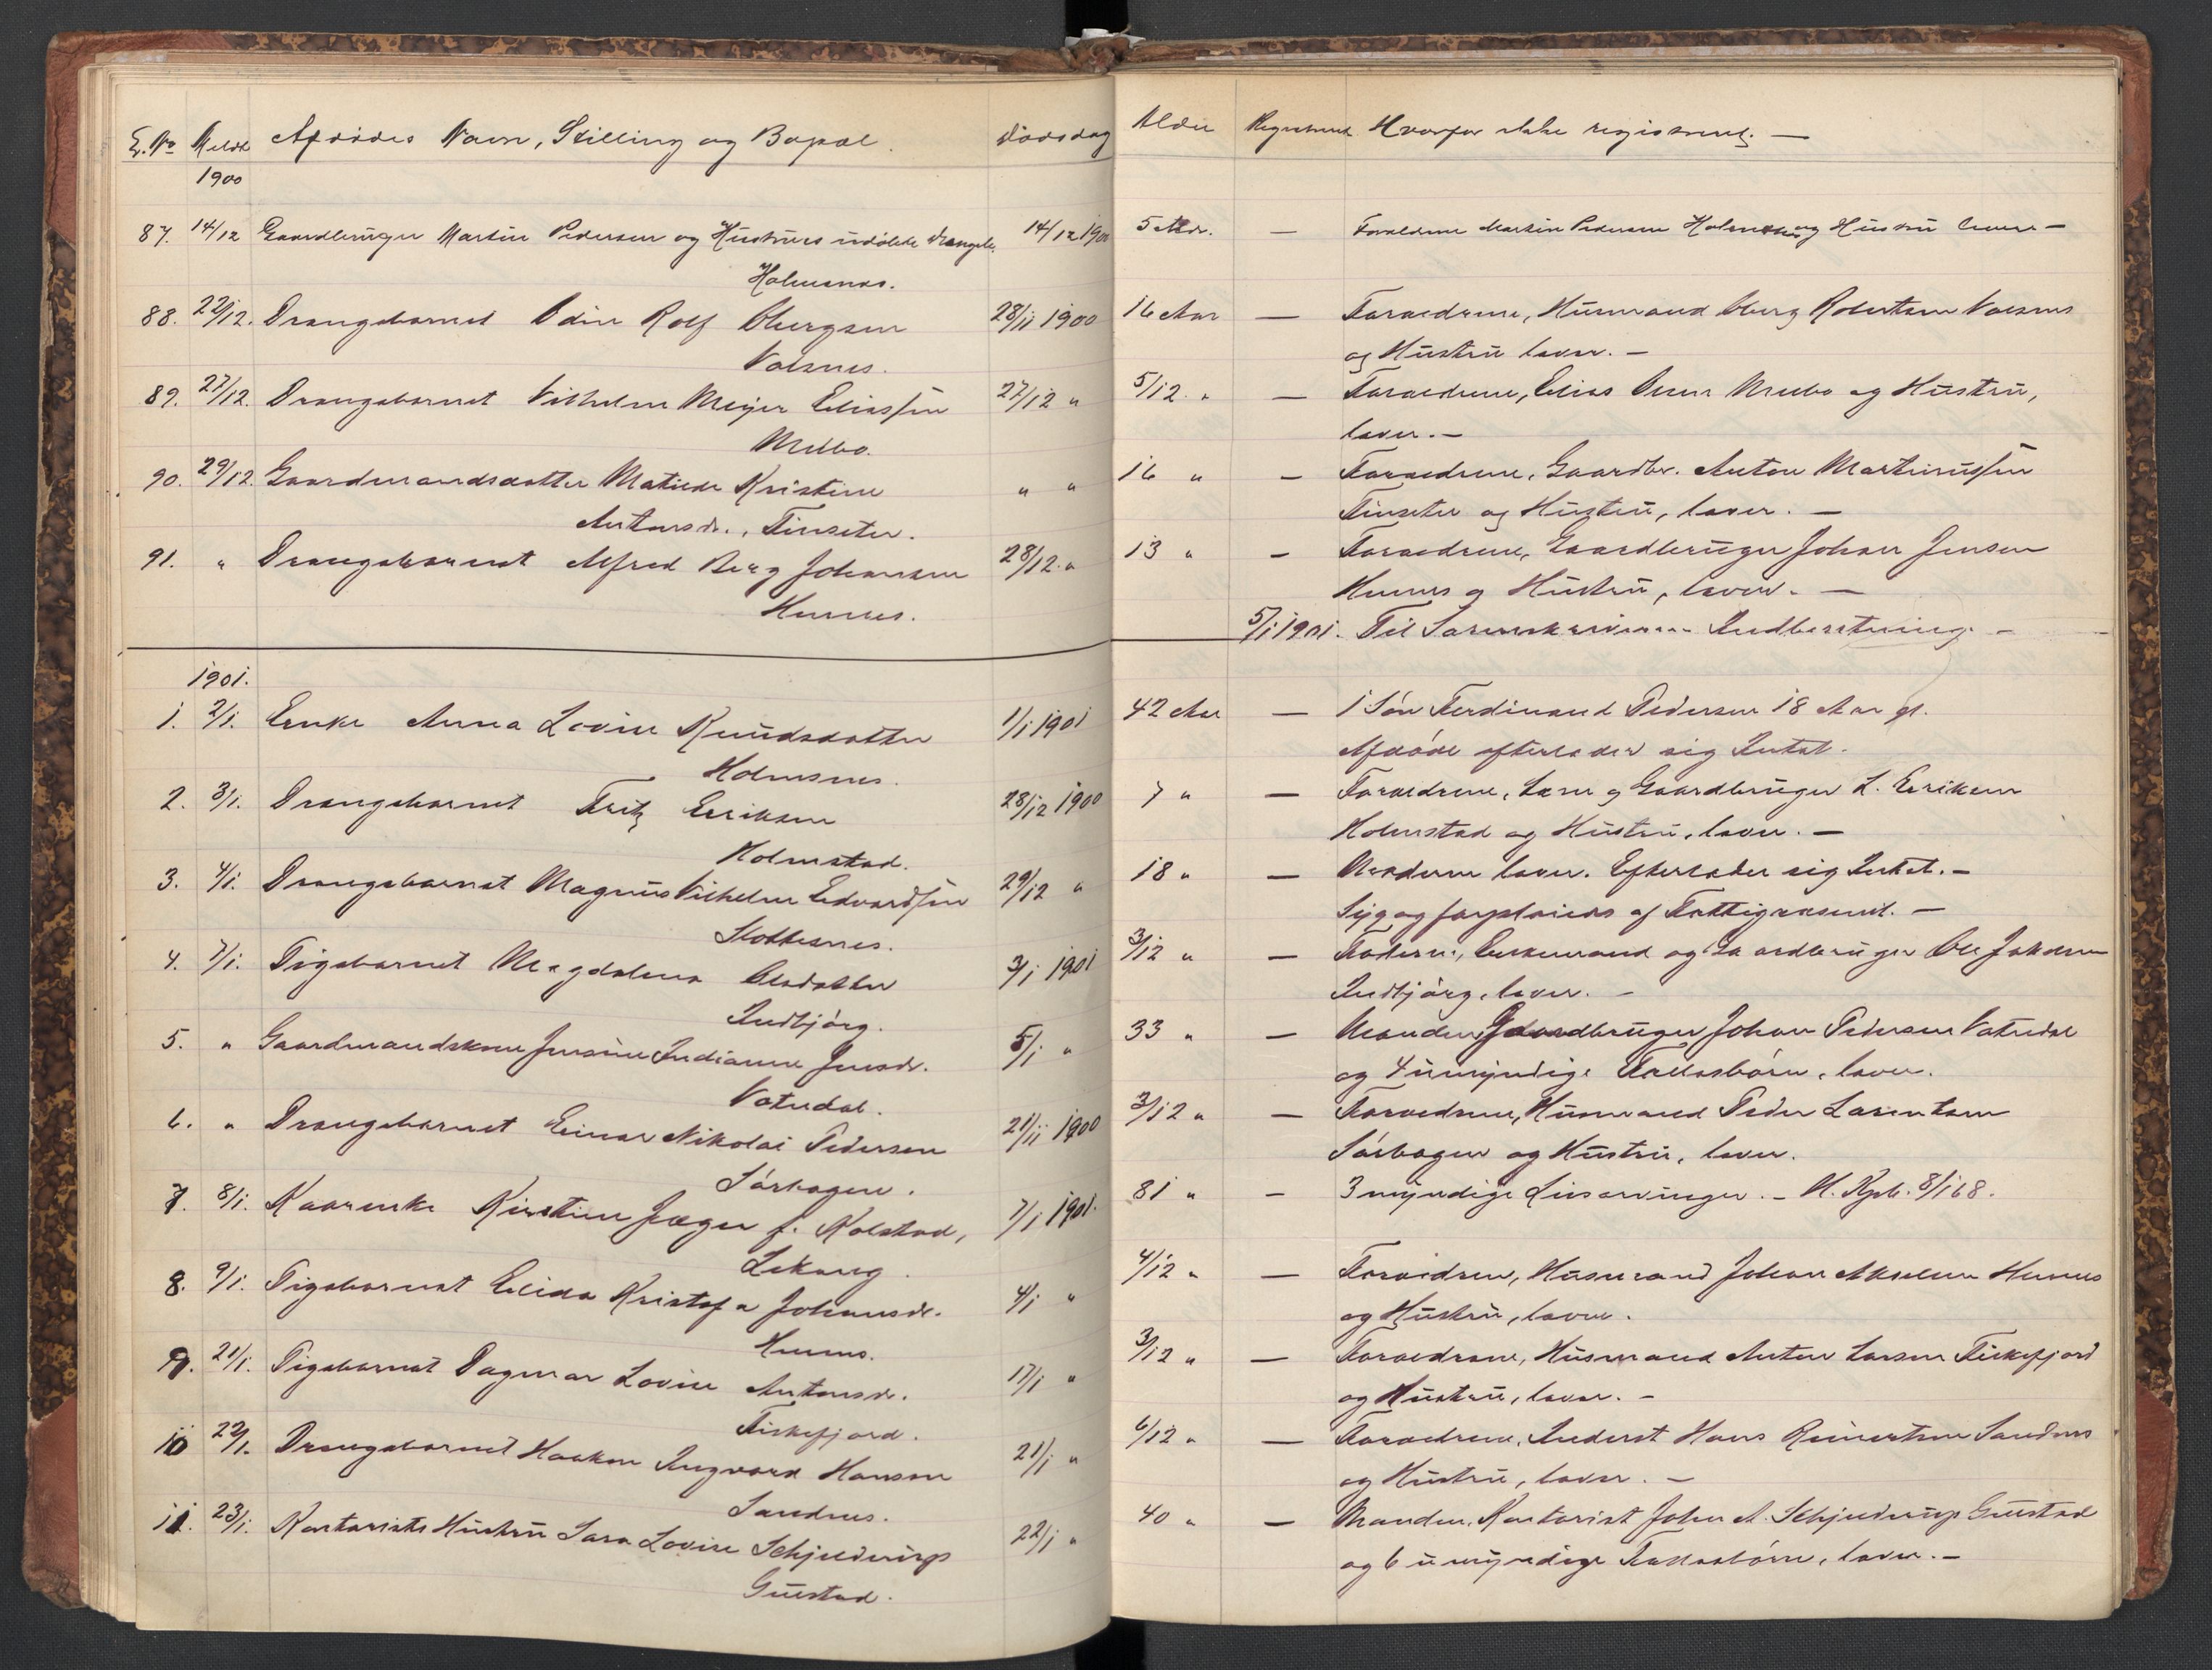 L. No Meldt Afdødes Navn, Stilling og Bopæl. Dødsdag Alder Registreret Hvorfor ikke registreret. —
1900
87. 14/12 Gaardbruger Martin Pedersen og Hustrues udøbte Drengeb. 14/12 1900 5 Mdr. — Forældrene Martin Pedersen Holmsnes og Hustru lever —
Holmsnes.
88. 22/12. Drengebarnet Odin Rolf Obergsen 28/11 1900 16 Aar — Forældrene, Husmand Oberg Robertsen Valsnes
Valsnes. og Hustru lever. —
89. 27/12. Drengebarnet Vilhelm Meyer Eliassen 27/12 " 5/12 " — Forældrene, Elias Olsen Melbo og Hustru,
Melbo. lever. —
90. 29/12. Gaardmandsdatter Matilde Kristine " " 16 " — Forældrene, Gaardbr. Anton Martinussen
Antonsdr., Finseter. Finseter og Hustru, lever. —
91. " Drengebarnet Alfred Berg Johansen 28/12. " 13 " — Forældrene, Gaardbruger Johan Jensen
Hennes. Hennes og Hustru, lever. —
5/1 1901. Til Sorenskriveren Indberetning —
1901.
1. 2/1. Enke Anna Lovise Knudsdatter 1/1 1901 42 Aar — 1 Søn Ferdinand Pedersen 18 Aar gl.
Holmsnes. Afdøde efterlader sig Intet.
2. 3/1. Drengebarnet Fritz Eriksen 28/12 1900 7 " — Forældrene, Lærer og Gaardbruger L. Eriksen
Holmstad. Holmstad og Hustru, lever. —
3. 4/1. Drengebarnet Magnus Vilhelm Edvardsen 29/12 " 18 " — Moderen lever. Efterlader sig Intet. —
Slottesnes. Syg og forpleiedes af Fattigvæsenet. —
4. 7/1. Pigebarnet Magdalena Olsdatter 3/1 1901 3/12 " — Faderen, Enkemand og Gaardbruger Ole Jakobsen
Indbjørg. Indbjørg, lever. —
5. " Gaardmandskone Jensine Indianne Jensdr. 5/1 " 33 " — Manden Gaardbruger Johan Pedersen Vatndal
Vatndal. og 4 umyndige Fællesbørn, lever.
6. " Drengebarnet Einar Nikolai Pedersen 21/11 1900 3/12 " — Forældrene, Husmand Peder Larentsen
Sørhagen. Sørhagen og Hustru, lever.
7. 8/1. Kaarenke Kirstine Jæger f. Kolstad, 7/1 1901. 81 " — 3 myndige Livsarvinger. — U. Kgb. 8/1 68.
Lekang.
8. 9/1. Pigebarnet Elida Kristofa Johansdr. 4/1 " 4/12 " — Forældrene, Husmand Johan Akselsen Hennes
Hennes. og Hustru, lever.
9. 21/1. Pigebarnet Dagmar Lovise Antonsdr. 17/1 " 3/12 " — Forældrene, Husmand Anton Larsen Fiskefjord
Fiskefjord. og Hustru, lever. —
10 22/1. Drengebarnet Haakon Ingvard Hansen 21/1 " 6/12 " — Forældrene, Inderst Hans Reinertsen Sandnes
Sandnes. og Hustru, lever. —
11. 23/1. Kontorists Hustru Sara Lovise Schjelderup 22/1 " 40 " — Manden, Kontorist John A. Schjelderup Guustad
Guustad. og 6 umyndige Fællesbørn, lever. —